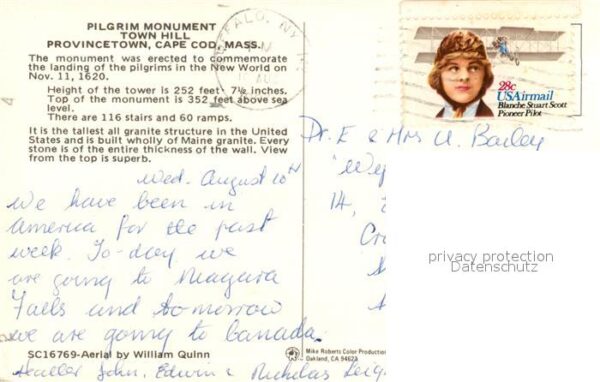 PILGRIM MONUMENT
TOWN HILL
PROVINCETOWN, CAPE COD, MASS.
The monument was erected to commemorate
the landing of the pilgrims in the New World on
Nov. 11, 1620.
Height of the tower is 252 feet 7½ inches.
Top of the monument is 352 feet above sea
level.
There are 116 stairs and 60 ramps.
It is the tallest all granite structure in the United
States and is built wholly of Maine granite. Every
stone is of the entire thickness of the wall. View
from the top is superb.
Wed. August 10th
We have been in
America for the past
week. To-day we
are going to Niagara
Falls and tomorrow
we are going to Canada.
SC16769-Aerial by William Quinn
Heather John, Edwin & Nicholas
Mike Roberts Color Production
Oakland, CA 94623
BUFFALO, NY
28c
USAirmail
Blanche Stuart Scott
Pioneer Pilot
Dr. E & Mrs U. Bailey
14,
privacy protection
Datenschutz